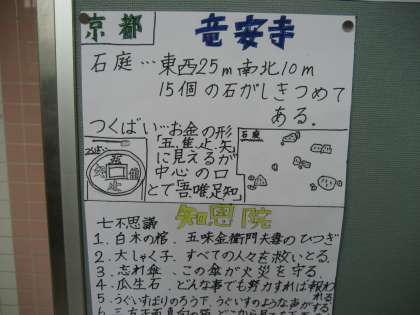 京都 竜安寺
石庭…東西25m南北10m
15個の石がしきつめて
ある.
つくばい…お金の形
「五、隹、止、矢」
に見えるが
中心の口
とで「吾唯足知」
つくばい
五
隹
止
矢
石庭
七不思議 知恩院
1.白木の棺.五味金衛門夫妻のひつぎ
2.大しゃく子.すべての人々を救いとる.
3.忘れ傘、この傘が火災を守る.
4.瓜生石.どんな事でも努力すれば報われる
5.うぐいすばりのろう下,うぐいすのような声がする
6.三方正面真向の猫.